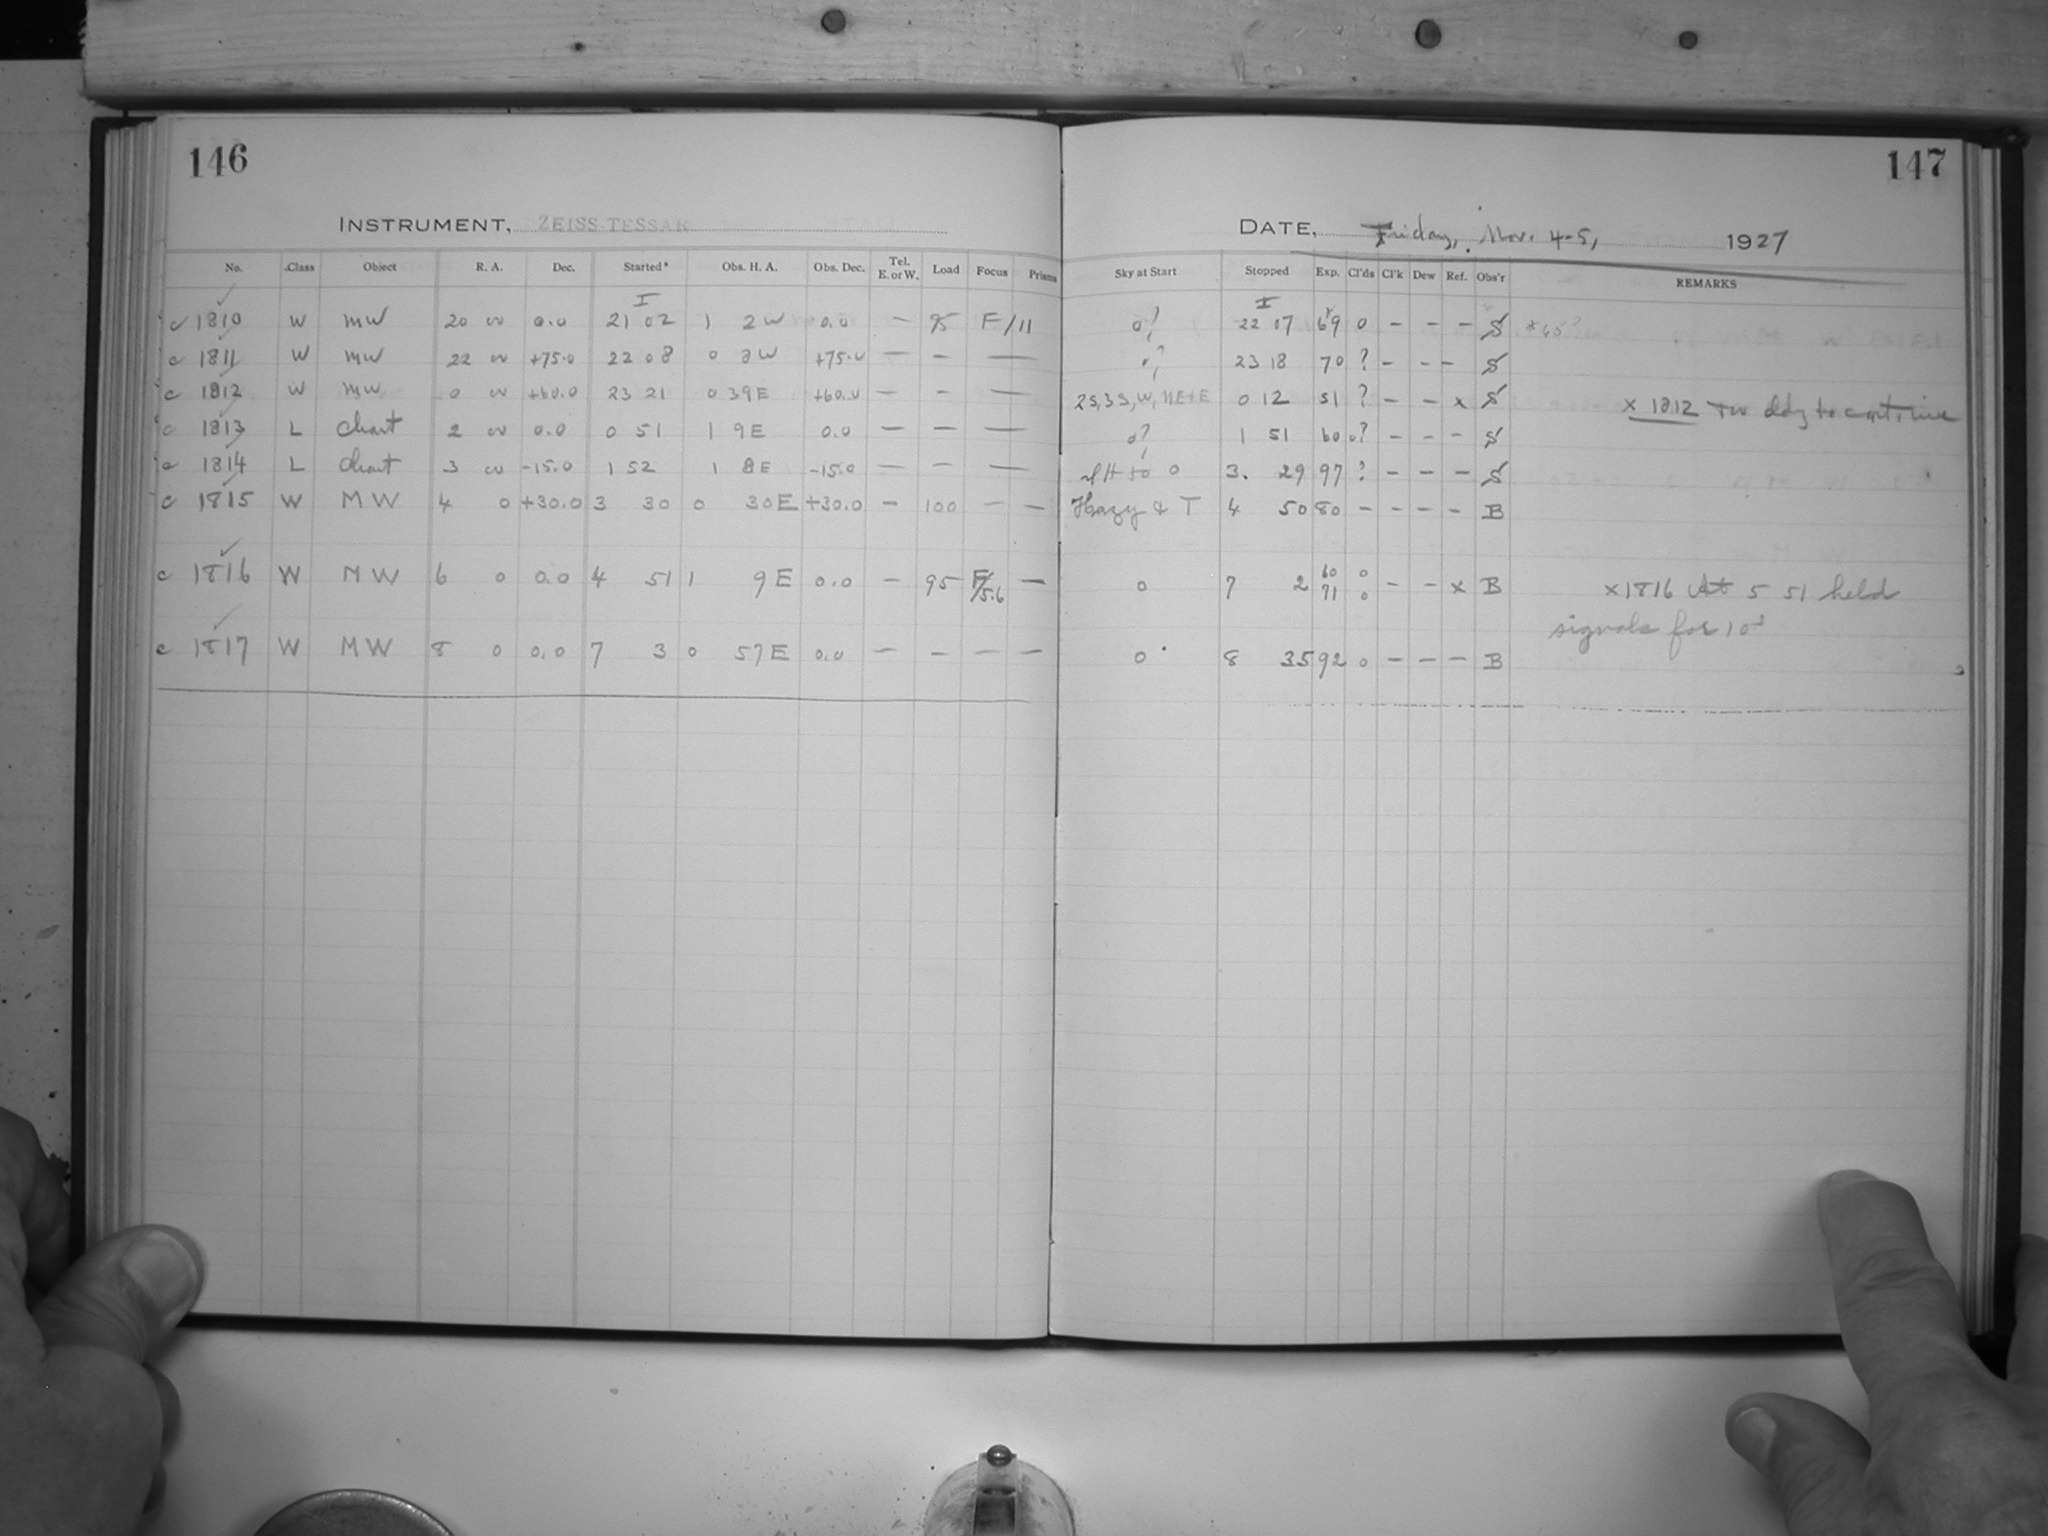 146
INSTRUMENT, ZEISS TESSAR
No. Class Object R. A. Dec. Started* Obs. H. A. Obs. Dec. Tel. E. or W. Load Focus Prisms
I
c 1810 W MW 20 0.0 21 02 1 2 W 0.0 — 95 F/11
c 1811 W MW 22 +75.0 22 08 0 2 W +75.0 — — —
c 1812 W MW 0 +60.0 23 21 0 39 E +60.0 — — —
c 1813 L Chart 2 0.0 0 51 1 9 E 0.0 — — —
c 1814 L Chart 3 -15.0 1 52 1 8 E -15.0 — — —
c 1815 W MW 4 0 +30.0 3 30 0 30 E +30.0 — 100 — —
c 1816 W MW 6 0 0.0 4 51 1 9 E 0.0 — 95 F/5.6 —
c 1817 W MW 8 0 0.0 7 3 0 57 E 0.0 — — — —
147
DATE, Friday, Nov. 4-5, 1927
Sky at Start Stopped Exp. Cl'ds Cl'k Dew Ref. Obs'r REMARKS
I
0? 22 07 69 0 — — — S *65?
? 23 18 70 ? — — — S
2S, 3S, W, NE+E 0 12 51 ? — — x S x 1812 to continue
0? 1 51 60 0? — — — S
to 0 3. 29 97 ? — — — S
Hazy & T 4 50 80 — — — — B
0 7 2 60 71 0 0 — — x B x1816 At 5 51 held
signals for 10s
0 8 35 92 0 — — — B